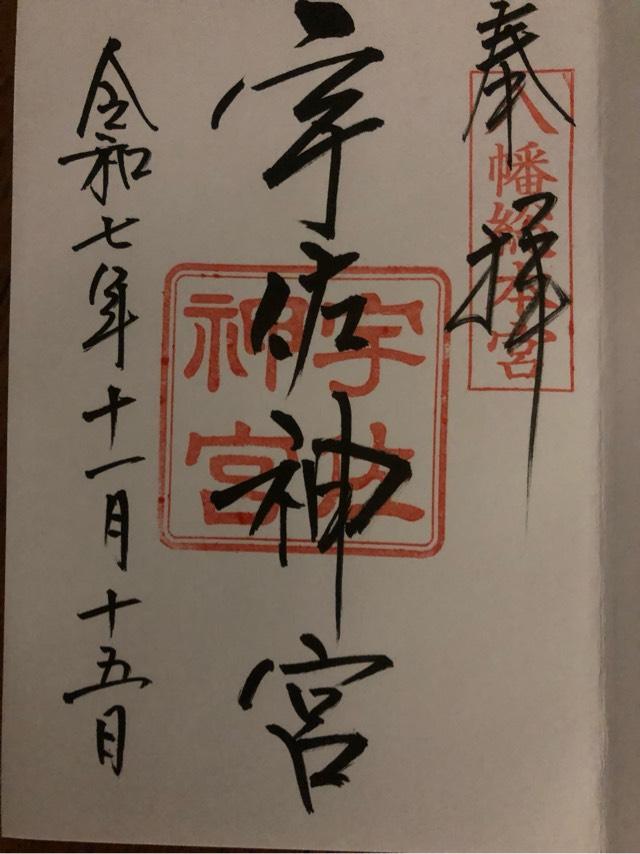 奉拝
八幡総本宮
宇佐神宮
宇佐
神宮
令和七年十一月十五日